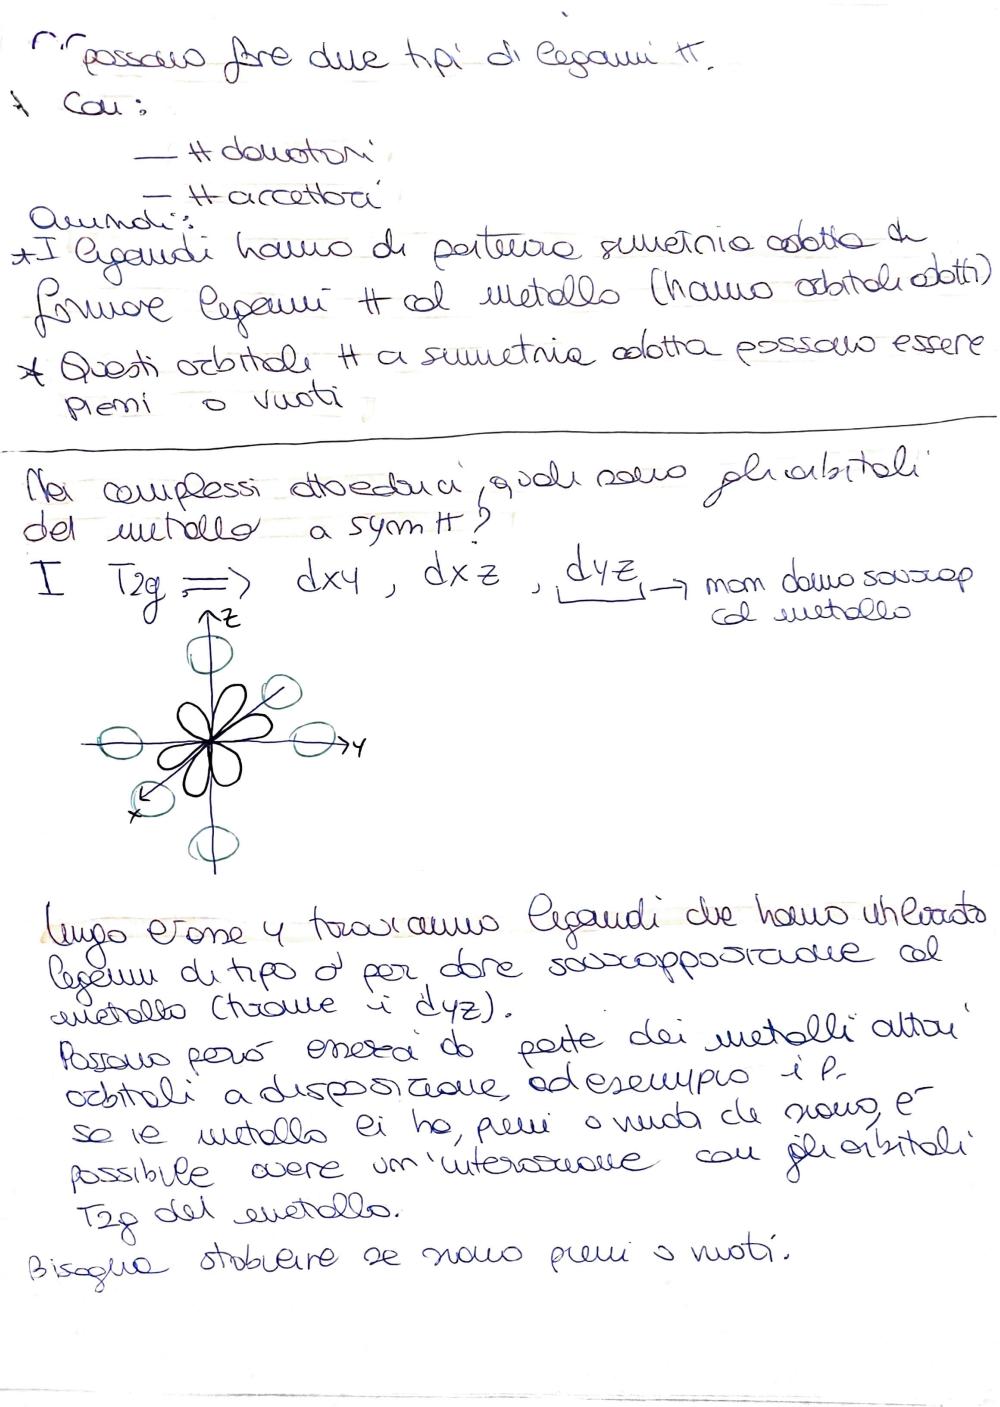 possono fare due tipi di legami π.
* Con:
— π donatori
— π accettori
Quindi:
* I legandi hanno di partenza simmetria adatta di
formare legami π col metallo (hanno orbitali adatti)
* Questi orbitali π a simmetria adatta possono essere
pieni o vuoti
Nei complessi ottaedrici, quali sono gli orbitali
del metallo a sym π?
I T2g => dxy, dxz, dyz → non danno sovrap
col metallo
Z
Y
x
lungo l'asse y troveranno legandi che hanno utilizzato
legami di tipo σ per dare sovrapposizione col
metallo (tranne i dyz).
Possono però esserci da parte dei metalli altri
orbitali a disposizione, ad esempio i P.
se il metallo ci ha, pieni o vuoti che siano, è
possibile avere un'interazione con gli orbitali
T2g del metallo.
Bisogna stabilire se sono pieni o vuoti.